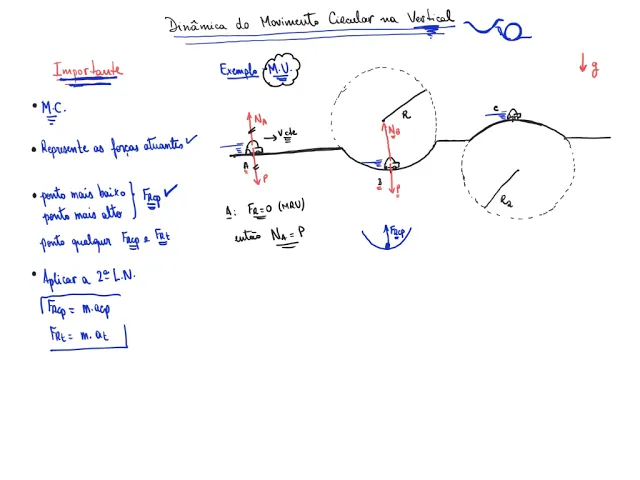 Dinâmica do Movimento Circular na Vertical
Importante
• M.C.
• Represente as forças atuantes
• ponto mais baixo } FRcp
ponto mais alto
ponto qualquer FRcp e FRt
• Aplicar a 2ª L.N.
FRcp = m.acp
FRt = m.at
Exemplo M.U.
g
NA
Vcte
A
P
R
NB
B
P
C
R2
A: FR=0 (MRU)
então NA = P
FRcp